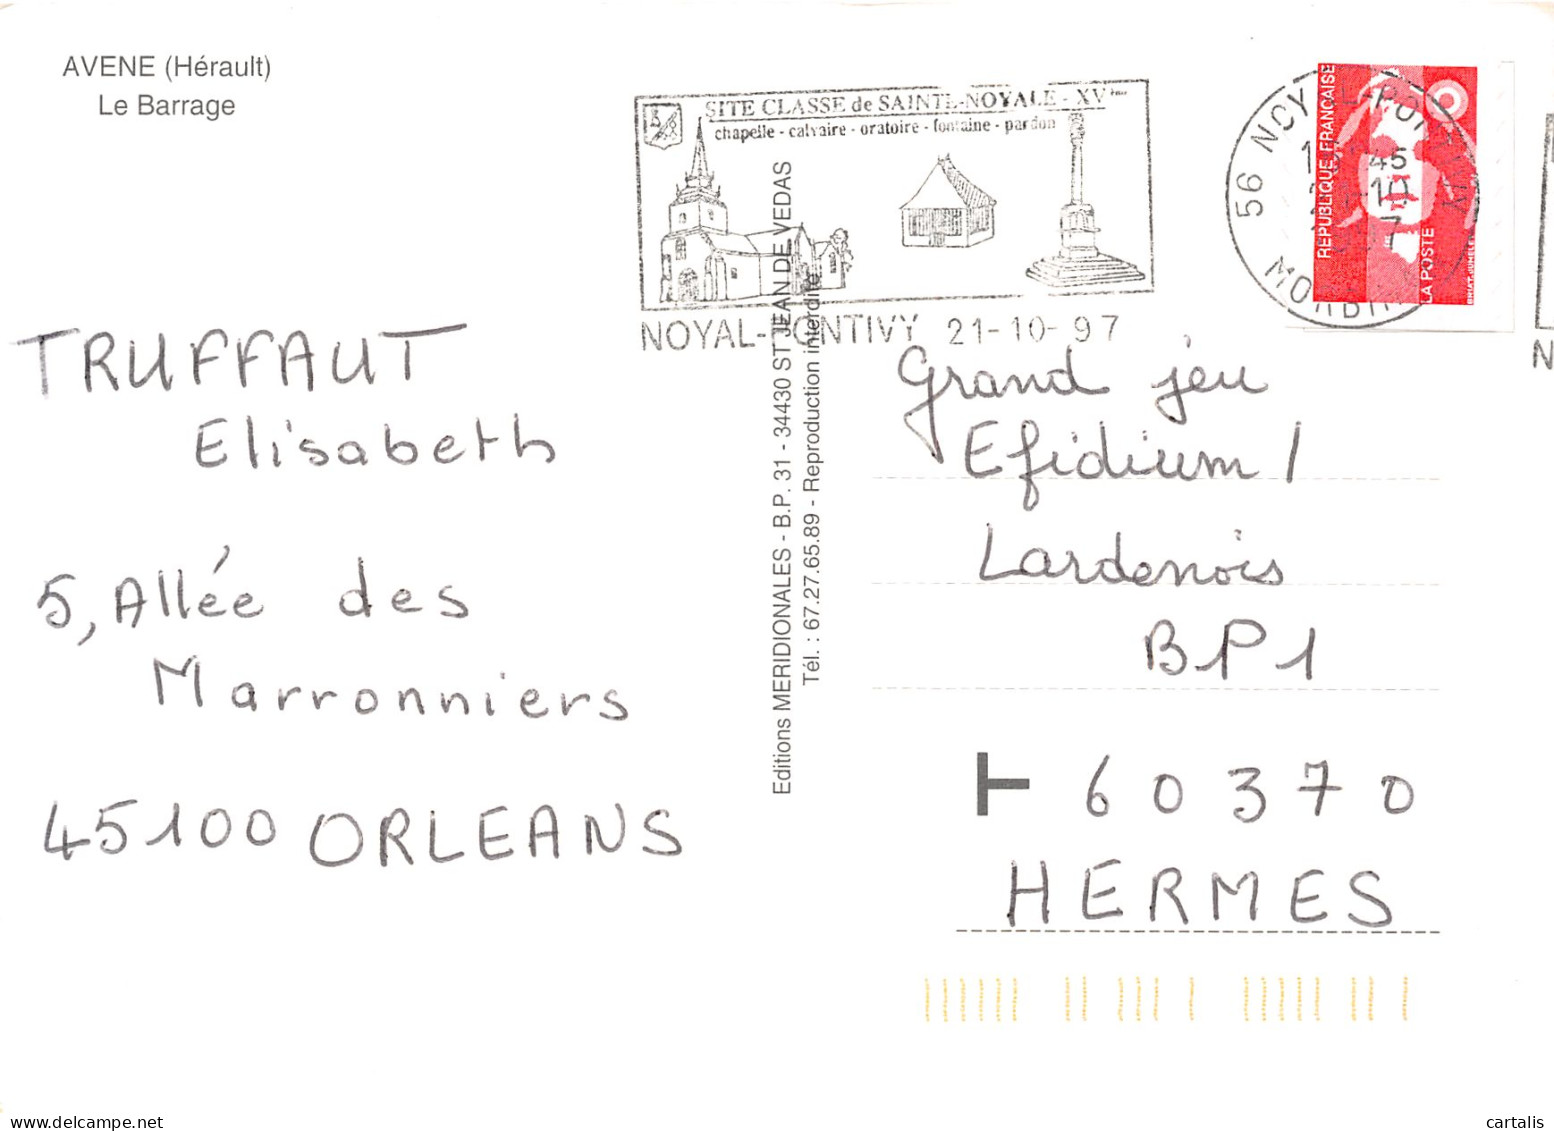 AVENE (Hérault)
Le Barrage
SITE CLASSE de SAINTE-NOYALE - XVème
chapelle - calvaire - oratoire - fontaine - pardon
NOYAL-PONTIVY 21-10-97
56 NOYAL-PONTIVY
MORBIHAN
REPUBLIQUE FRANÇAISE
LA POSTE
TRUFFAUT
Elisabeth
5, Allée des
Marronniers
45100 ORLEANS
Editions MERIDIONALES - B.P. 31 - 34430 ST JEAN DE VEDAS
Tél. : 67.27.65.89 - Reproduction interdite
Grand jeu
Efidium /
Lardenois
BP1
T 60370
HERMES
N
cartalis
delcampe.net